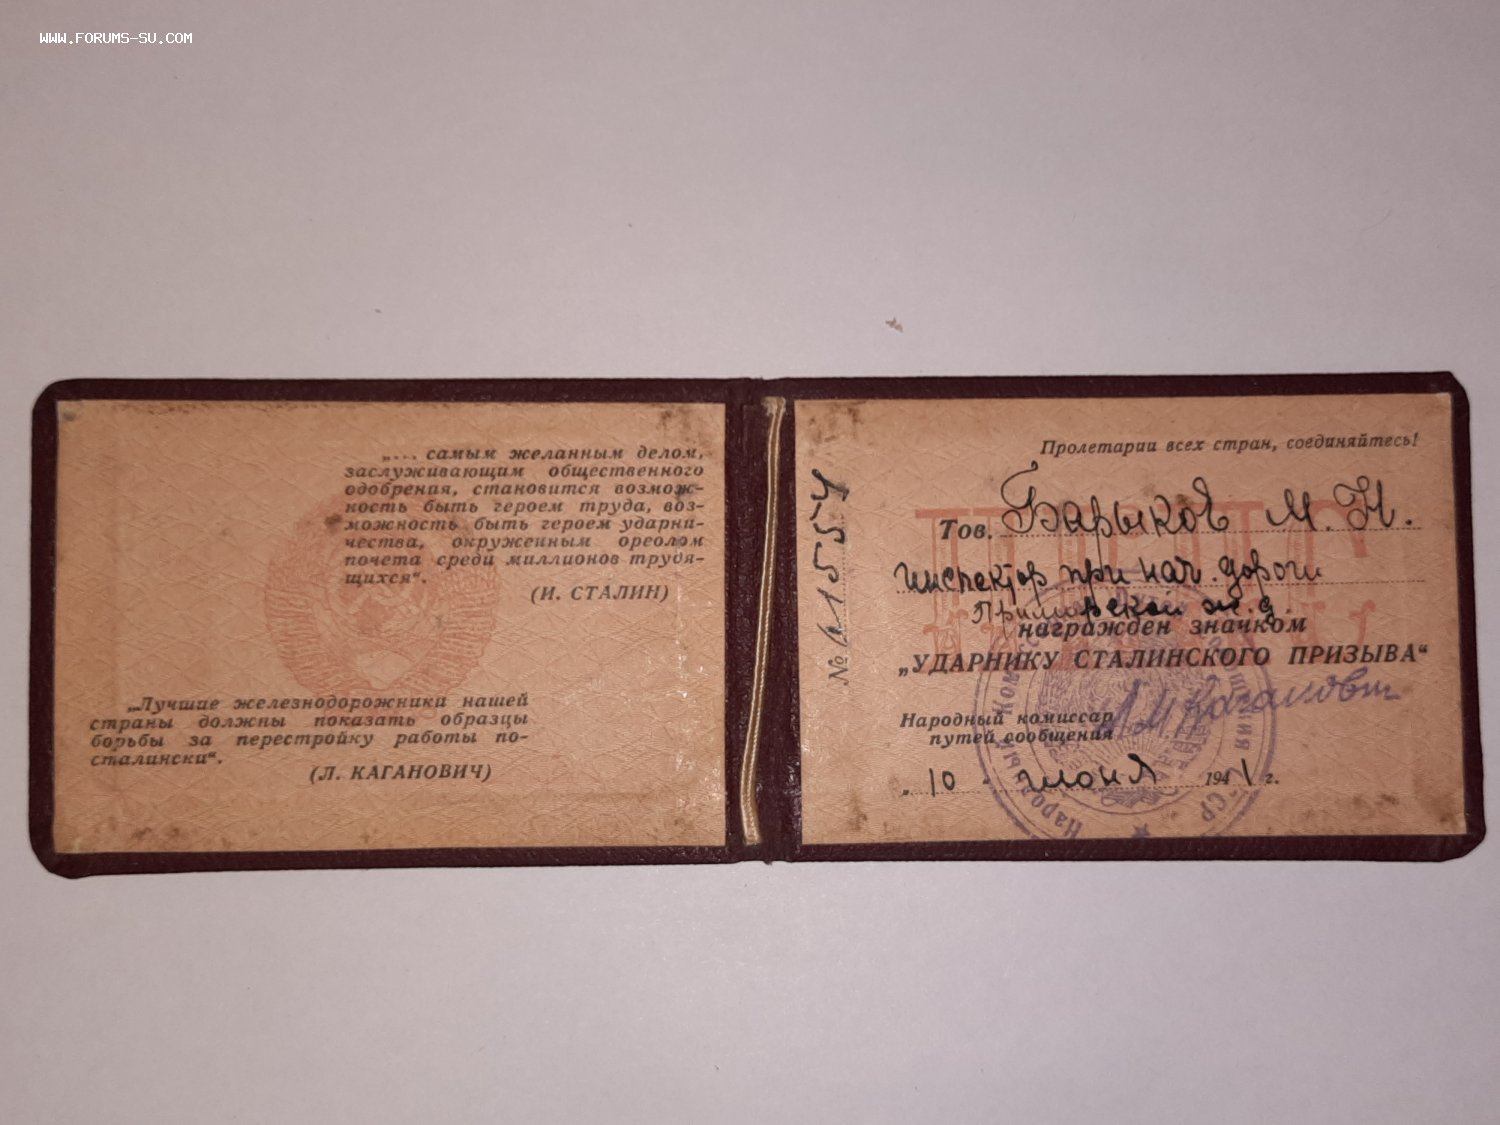 WWW.FORUMS-SU.COM
„... самым желанным делом,
заслуживающим общественного
одобрения, становится возмож-
ность быть героем труда, воз-
можность быть героем ударни-
чества, окруженным ореолом
почета среди миллионов трудя-
щихся“.
(И. СТАЛИН)
„Лучшие железнодорожники нашей
страны должны показать образцы
борьбы за перестройку работы по-
сталински“.
(Л. КАГАНОВИЧ)
Пролетарии всех стран, соединяйтесь!
Тов. Барыков М. Н.
инспектор при нач. дороги
Приморской ж.д.
награжден значком
„УДАРНИКУ СТАЛИНСКОГО ПРИЗЫВА“
Народный комиссар
путей сообщения
Л М Каганович
„10“ июня 1941 г.
№